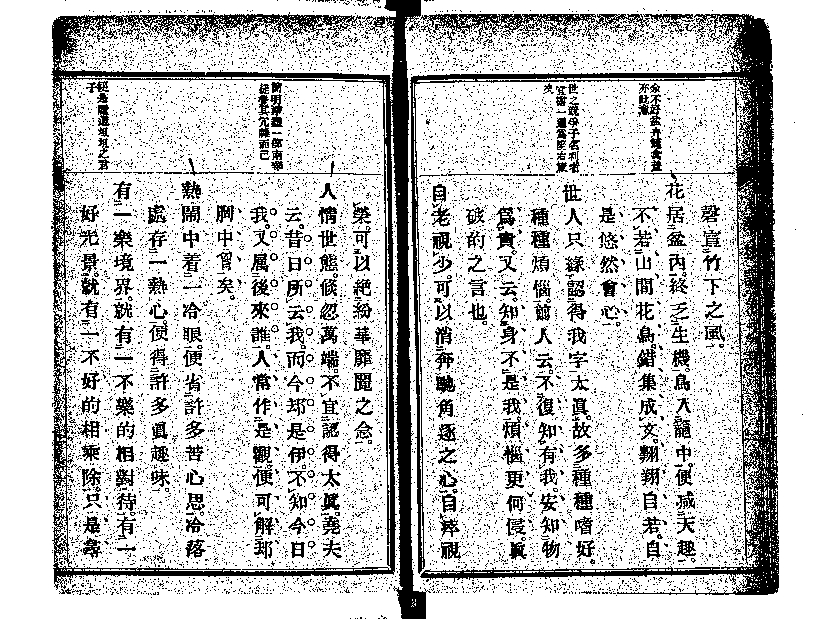 磬宣竹下之風。
花居盆内。終乏生機。鳥入籠中。便減天趣。
不若山間花鳥。錯集成文。翺翔自若。自
是悠然會心。
世人只緣認得我字太眞。故多種種嗜好。
種種煩惱。前人云。不復知有我。安知物
爲貴。又云。知身不是我。煩惱更何侵。眞
破的之言也。
自老視少。可以消奔馳角逐之心。自瘁視
榮。可以絶紛華靡麗之念。
人情世態。倏忽萬端。不宜認得太眞。堯夫
云。昔日所云我。而今却是伊。不知今日
我。又屬後來誰。人當作是觀。便可解却
胸中罥矣。
熱鬧中着一冷眼。便省許多苦心思。冷落
處存一熱心。便得許多眞趣味。
有一樂境界。就有一不樂的相對待。有一
好光景。就有一不好的相乘除。只是尋